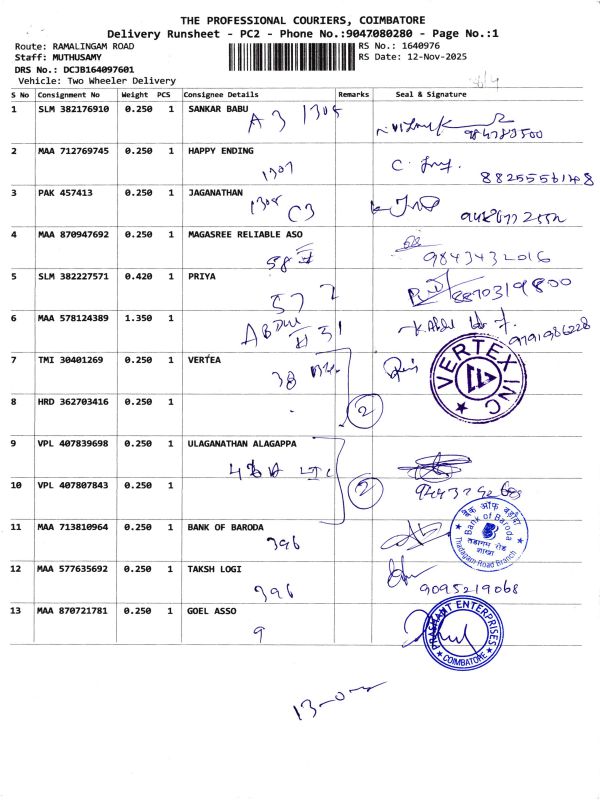 THE PROFESSIONAL COURIERS, COIMBATORE
Delivery Runsheet - PC2 - Phone No.:9047080280 - Page No.:1
Route: RAMALINGAM ROAD
RS No.: 1640976
Staff: MUTHUSAMY
RS Date: 12-Nov-2025
DRS No.: DCJB164097601
Vehicle: Two Wheeler Delivery
S No Consignment No Weight PCS Consignee Details Remarks Seal & Signature
1 SLM 382176910 0.250 1 SANKAR BABU
A 3 1304
984783500
2 MAA 712769745 0.250 1 HAPPY ENDING
1307
8825556148
3 PAK 457413 0.250 1 JAGANATHAN
1304 C3
4 MAA 870947692 0.250 1 MAGASREE RELIABLE ASO
58
9843432016
5 SLM 382227571 0.420 1 PRIYA
57 2
8870319800
6 MAA 578124389 1.350 1
ABDUL # 31
9791986228
7 TMI 30401269 0.250 1 VERTEA
38
VERTEX INC
8 HRD 362703416 0.250 1
2
9 VPL 407839698 0.250 1 ULAGANATHAN ALAGAPPA
LIC
10 VPL 407807843 0.250 1
2
11 MAA 713810964 0.250 1 BANK OF BARODA
396
बैंक ऑफ़ बड़ौदा
Bank of Baroda
तडागम रोड
शाखा
Thadagam Road Branch
12 MAA 577635692 0.250 1 TAKSH LOGI
396
9095219068
13 MAA 870721781 0.250 1 GOEL ASSO
9
PRASHANT ENTERPRISES
COIMBATORE